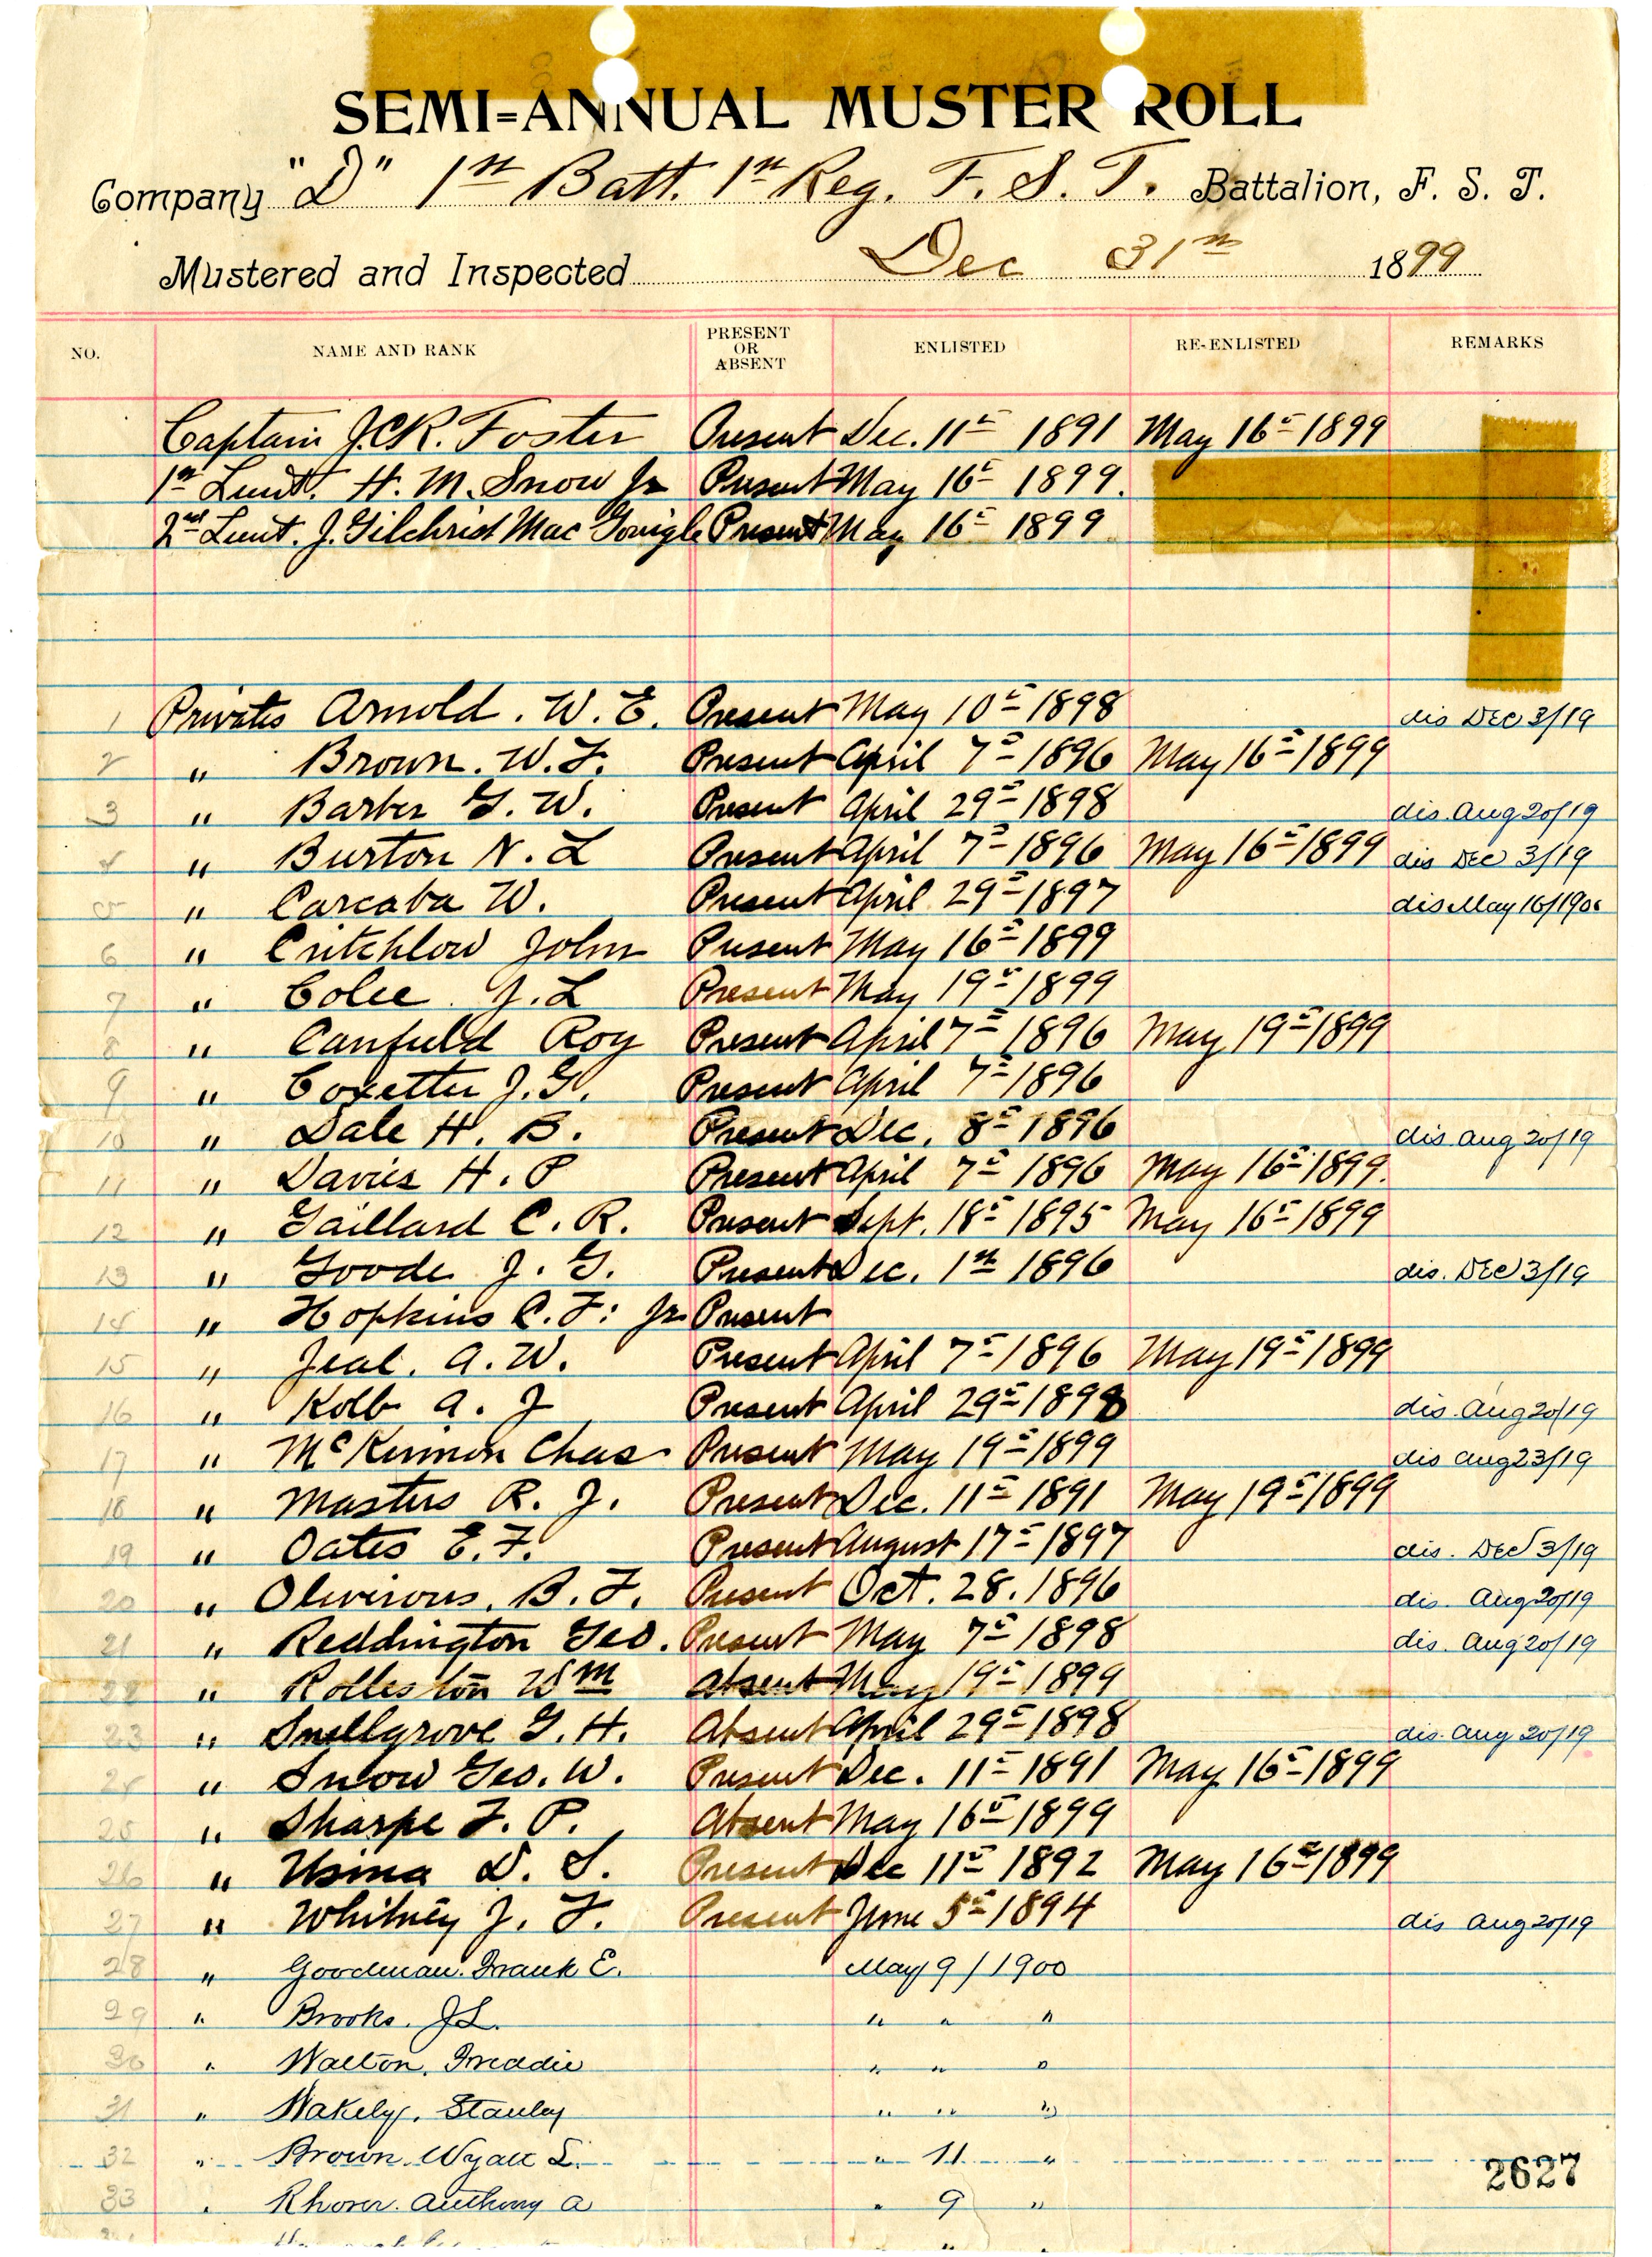 SEMI=ANNUAL MUSTER ROLL
Company "D" 1st Batt. 1st Reg. F. S. T. Battalion, F. S. T.
Mustered and Inspected Dec 31st 1899
NO. NAME AND RANK PRESENT OR ABSENT ENLISTED RE-ENLISTED REMARKS
Captain J.C.R. Foster Present Dec. 11th 1891 May 16th 1899
1st Lieut. H. M. Snow Jr Present May 16th 1899.
2nd Lieut. J. Gilchrist Mac Gonigle Present May 16th 1899
1 Privates Arnold. W. E. Present May 10th 1898 dis DEC 3/19
2 " Brown. W. F. Present April 7th 1896 May 16th 1899
3 " Barber G. W. Present April 29th 1898 dis. Aug 20/19
4 " Burton N. L Present April 7th 1896 May 16th 1899 dis DEC 3/19
5 " Carcaba W. Present April 29th 1897 dis May 16/1900
6 " Critchlow John Present May 16th 1899
7 " Colee J. L Present May 19th 1899
8 " Canfield Roy Present April 7th 1896 May 19th 1899
9 " Coxetter J. G. Present April 7th 1896
10 " Dale H. B. Present Dec. 8th 1896 dis. Aug 20/19
11 " Davies H. P Present April 7th 1896 May 16th 1899.
12 " Gaillard C. R. Present Sept. 18th 1895 May 16th 1899
13 " Goode J. G. Present Dec. 1st 1896 dis. DEC 3/19
14 " Hopkins C. F. Jr. Present
15 " Jeal. A. W. Present April 7th 1896 May 19th 1899
16 " Kolb A. J Present April 29th 1898 dis. Aug 20/19
17 " McKinnon Chas Present May 19th 1899 dis Aug 23/19
18 " Masters R. J. Present Dec. 11th 1891 May 19th 1899
19 " Oates E. F. Present August 17th 1897 dis. DEC 3/19
20 " Oliveros. B. F. Present Oct. 28. 1896 dis. Aug 20/19
21 " Reddington Geo. Present May 7th 1898 dis. Aug 20/19
22 " Rolleston Wm Absent May 19th 1899
23 " Snellgrove G. H. Absent April 29th 1898 dis. Aug 20/19
24 " Snow Geo. W. Present Dec. 11th 1891 May 16th 1899
25 " Sharpe F. P. Absent May 16th 1899
26 " Usina D. S. Present Dec 11th 1892 May 16th 1899
27 " Whitney J. F. Present June 5th 1894 dis Aug 20/19
28 " Goodman. Frank E. May 9/1900
29 " Brooks. J L. " " "
30 " Walton, Freddie " " "
31 " Wakely, Stanley " " "
32 " Brown. Wyatt L. " 11 "
2627
33 " Anthony A " 9 "